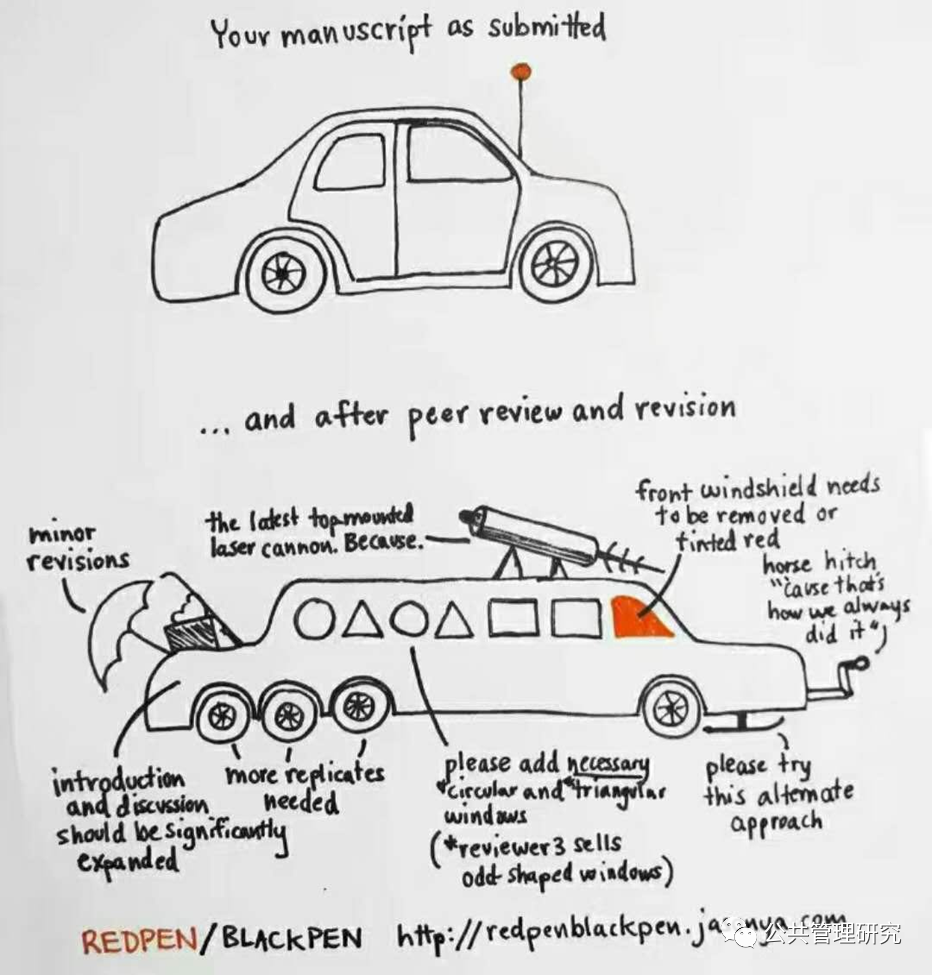 Your manuscript as submitted
... and after peer review and revision
minor
revisions
the latest top mounted
laser cannon. Because.
front windshield needs
to be removed or
tinted red
horse hitch
"cause that's
how we always
did it"
introduction
and discussion
should be significantly
expanded
more replicates
needed
please add necessary
*circular and *triangular
windows
(*reviewer 3 sells
odd shaped windows)
please try
this alternate
approach
REDPEN/BLACKPEN http://redpenblackpen.
公共管理研究